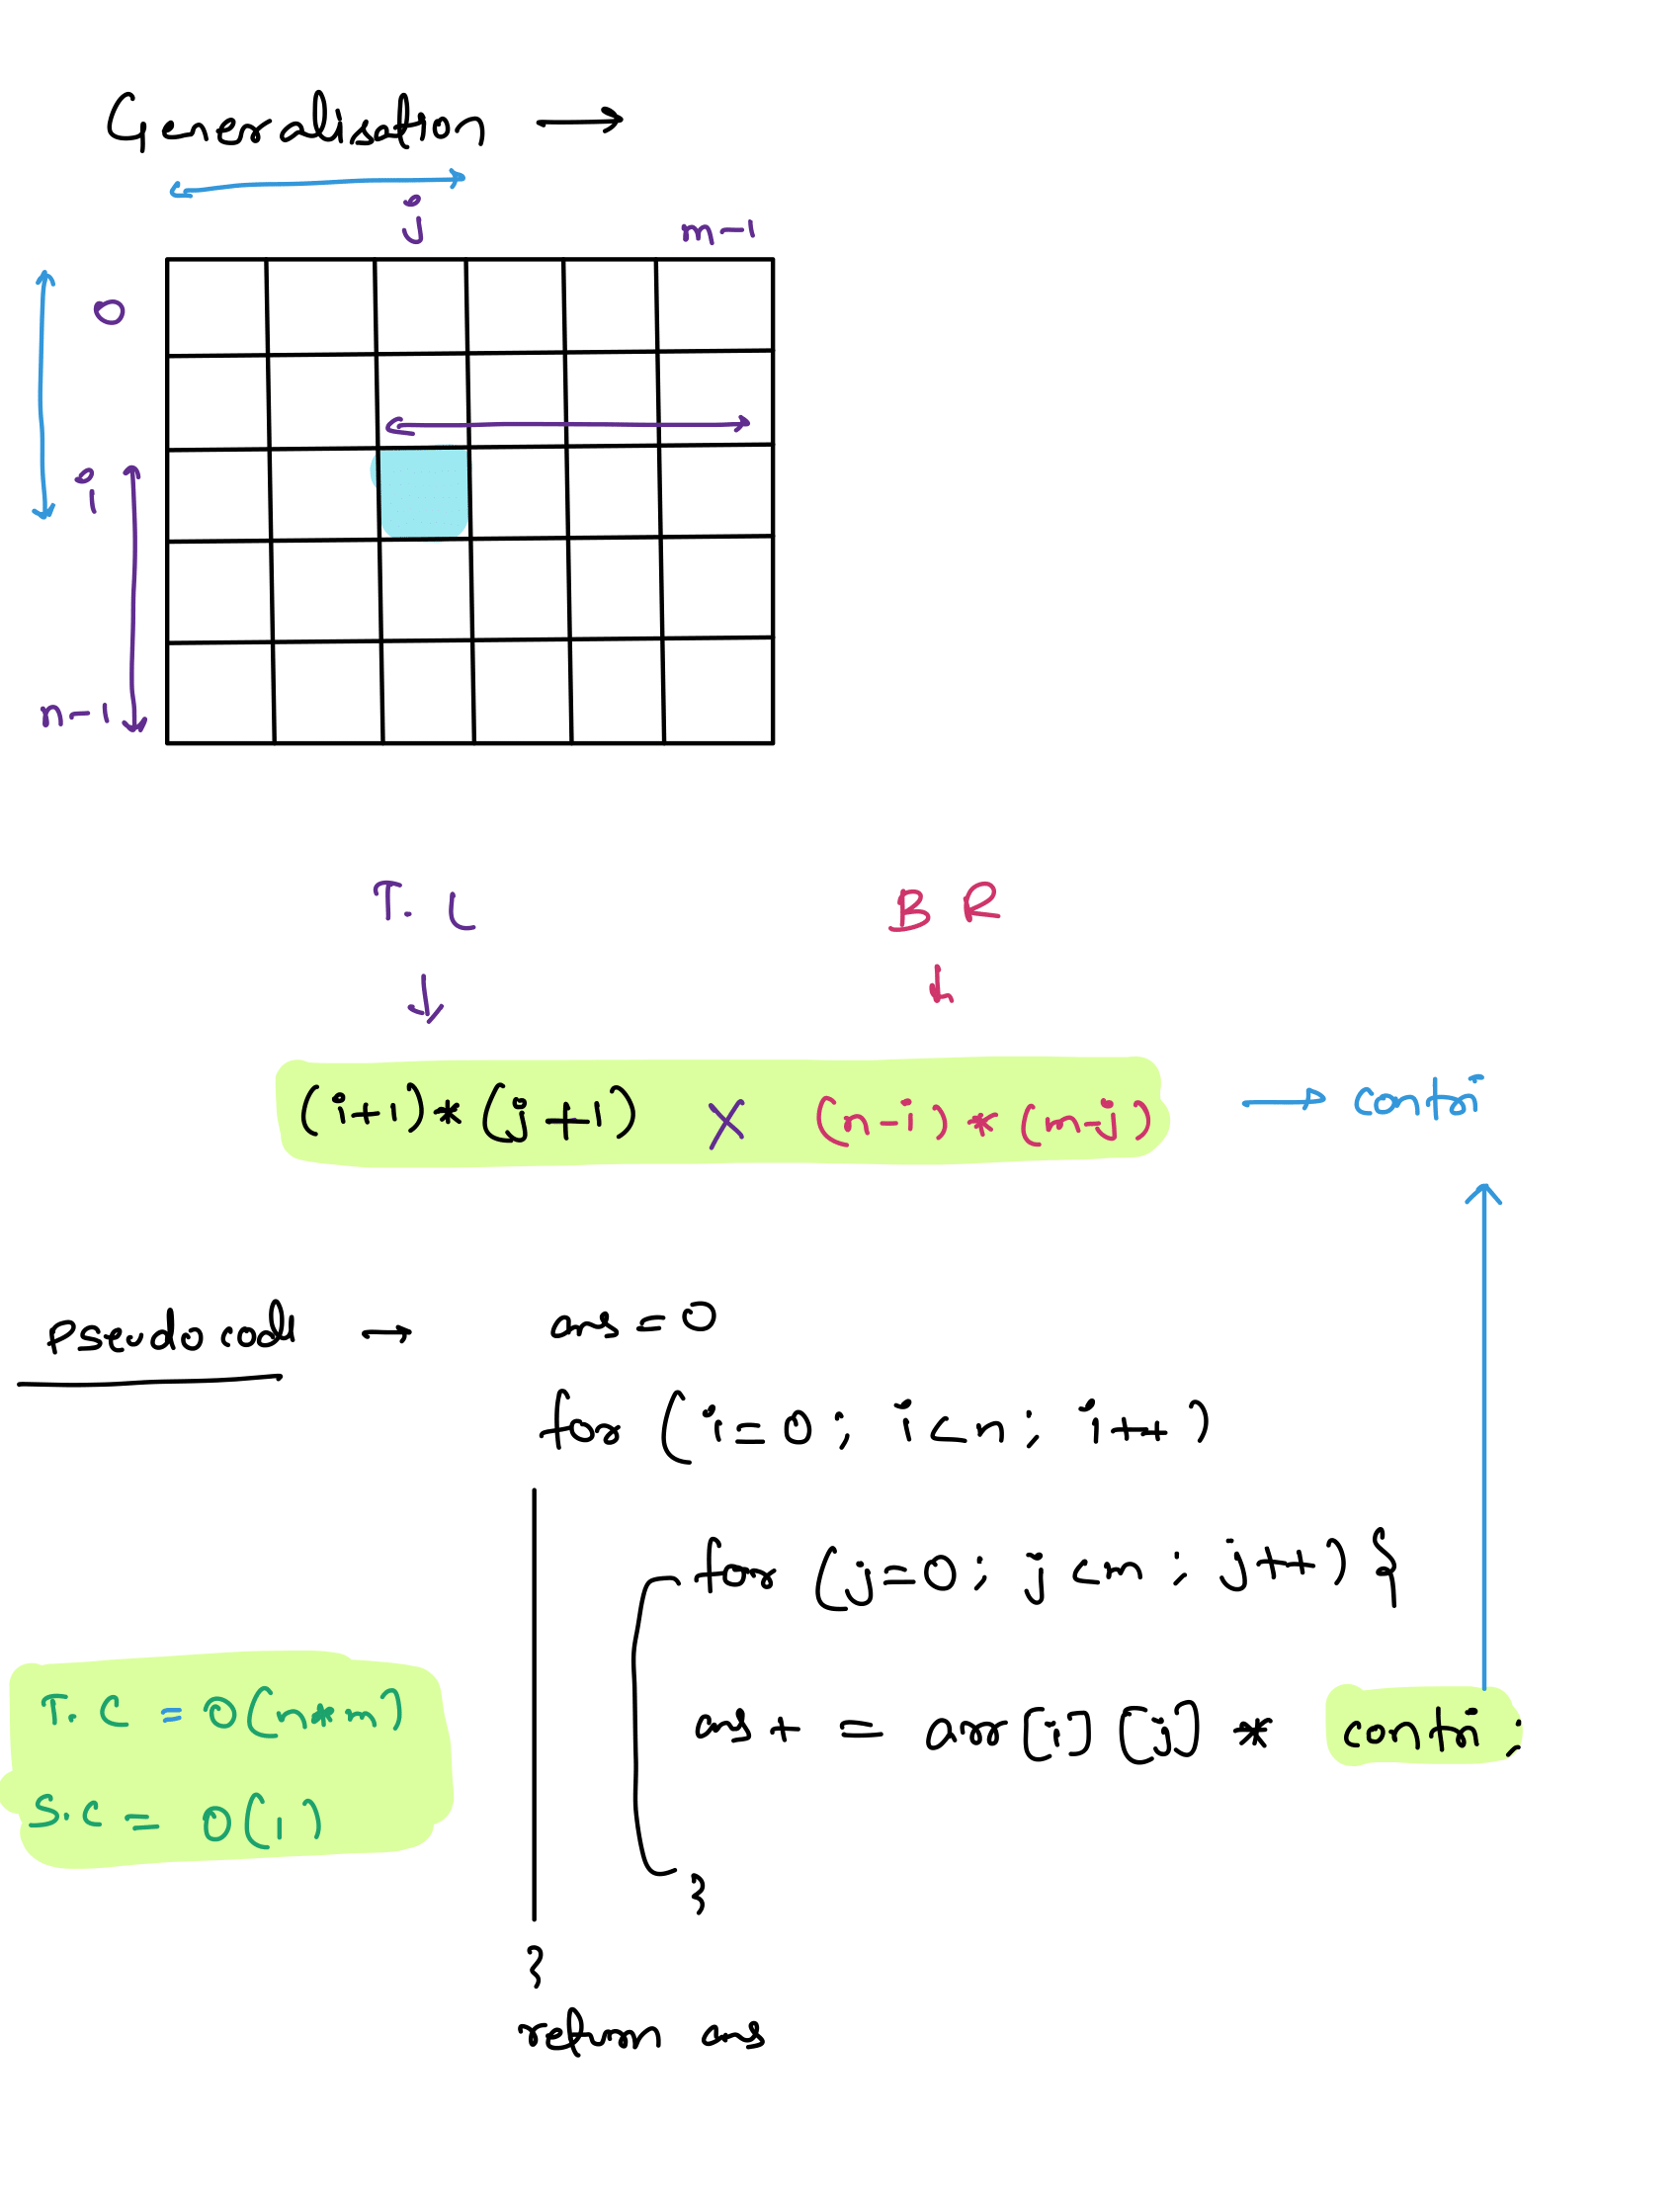 Generalisation →
j m-1
0
i
n-1
T. L B R
(i+1)*(j+1) X (n-i) * (m-j) → contri
Pseudo code → ans = 0
for (i=0; i<n; i++)
for (j=0; j<m; j++) {
T.C = O(n*m)
ans + = arr[i][j] * contri;
S.C = O(1)
}
}
return ans